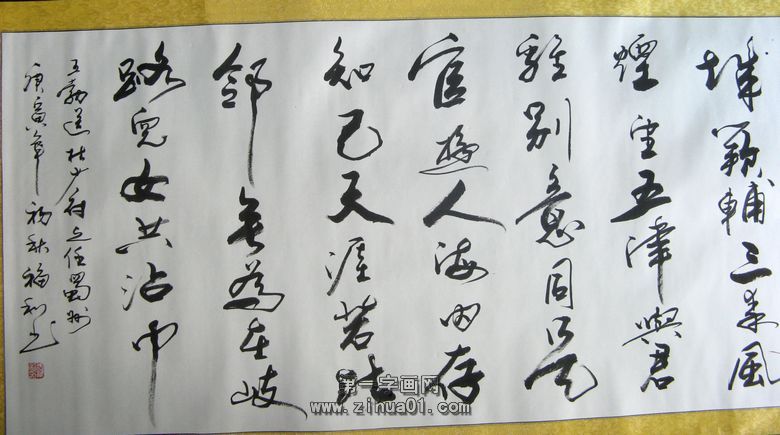 城闕輔三秦風
煙望五津與君
離别意同是
宦遊人海内存
知己天涯若比
鄰無為在岐
路兒女共沾巾
王勃送杜少府之任蜀州
庚寅年初秋福利书
第一字画网
www.zihua01.com